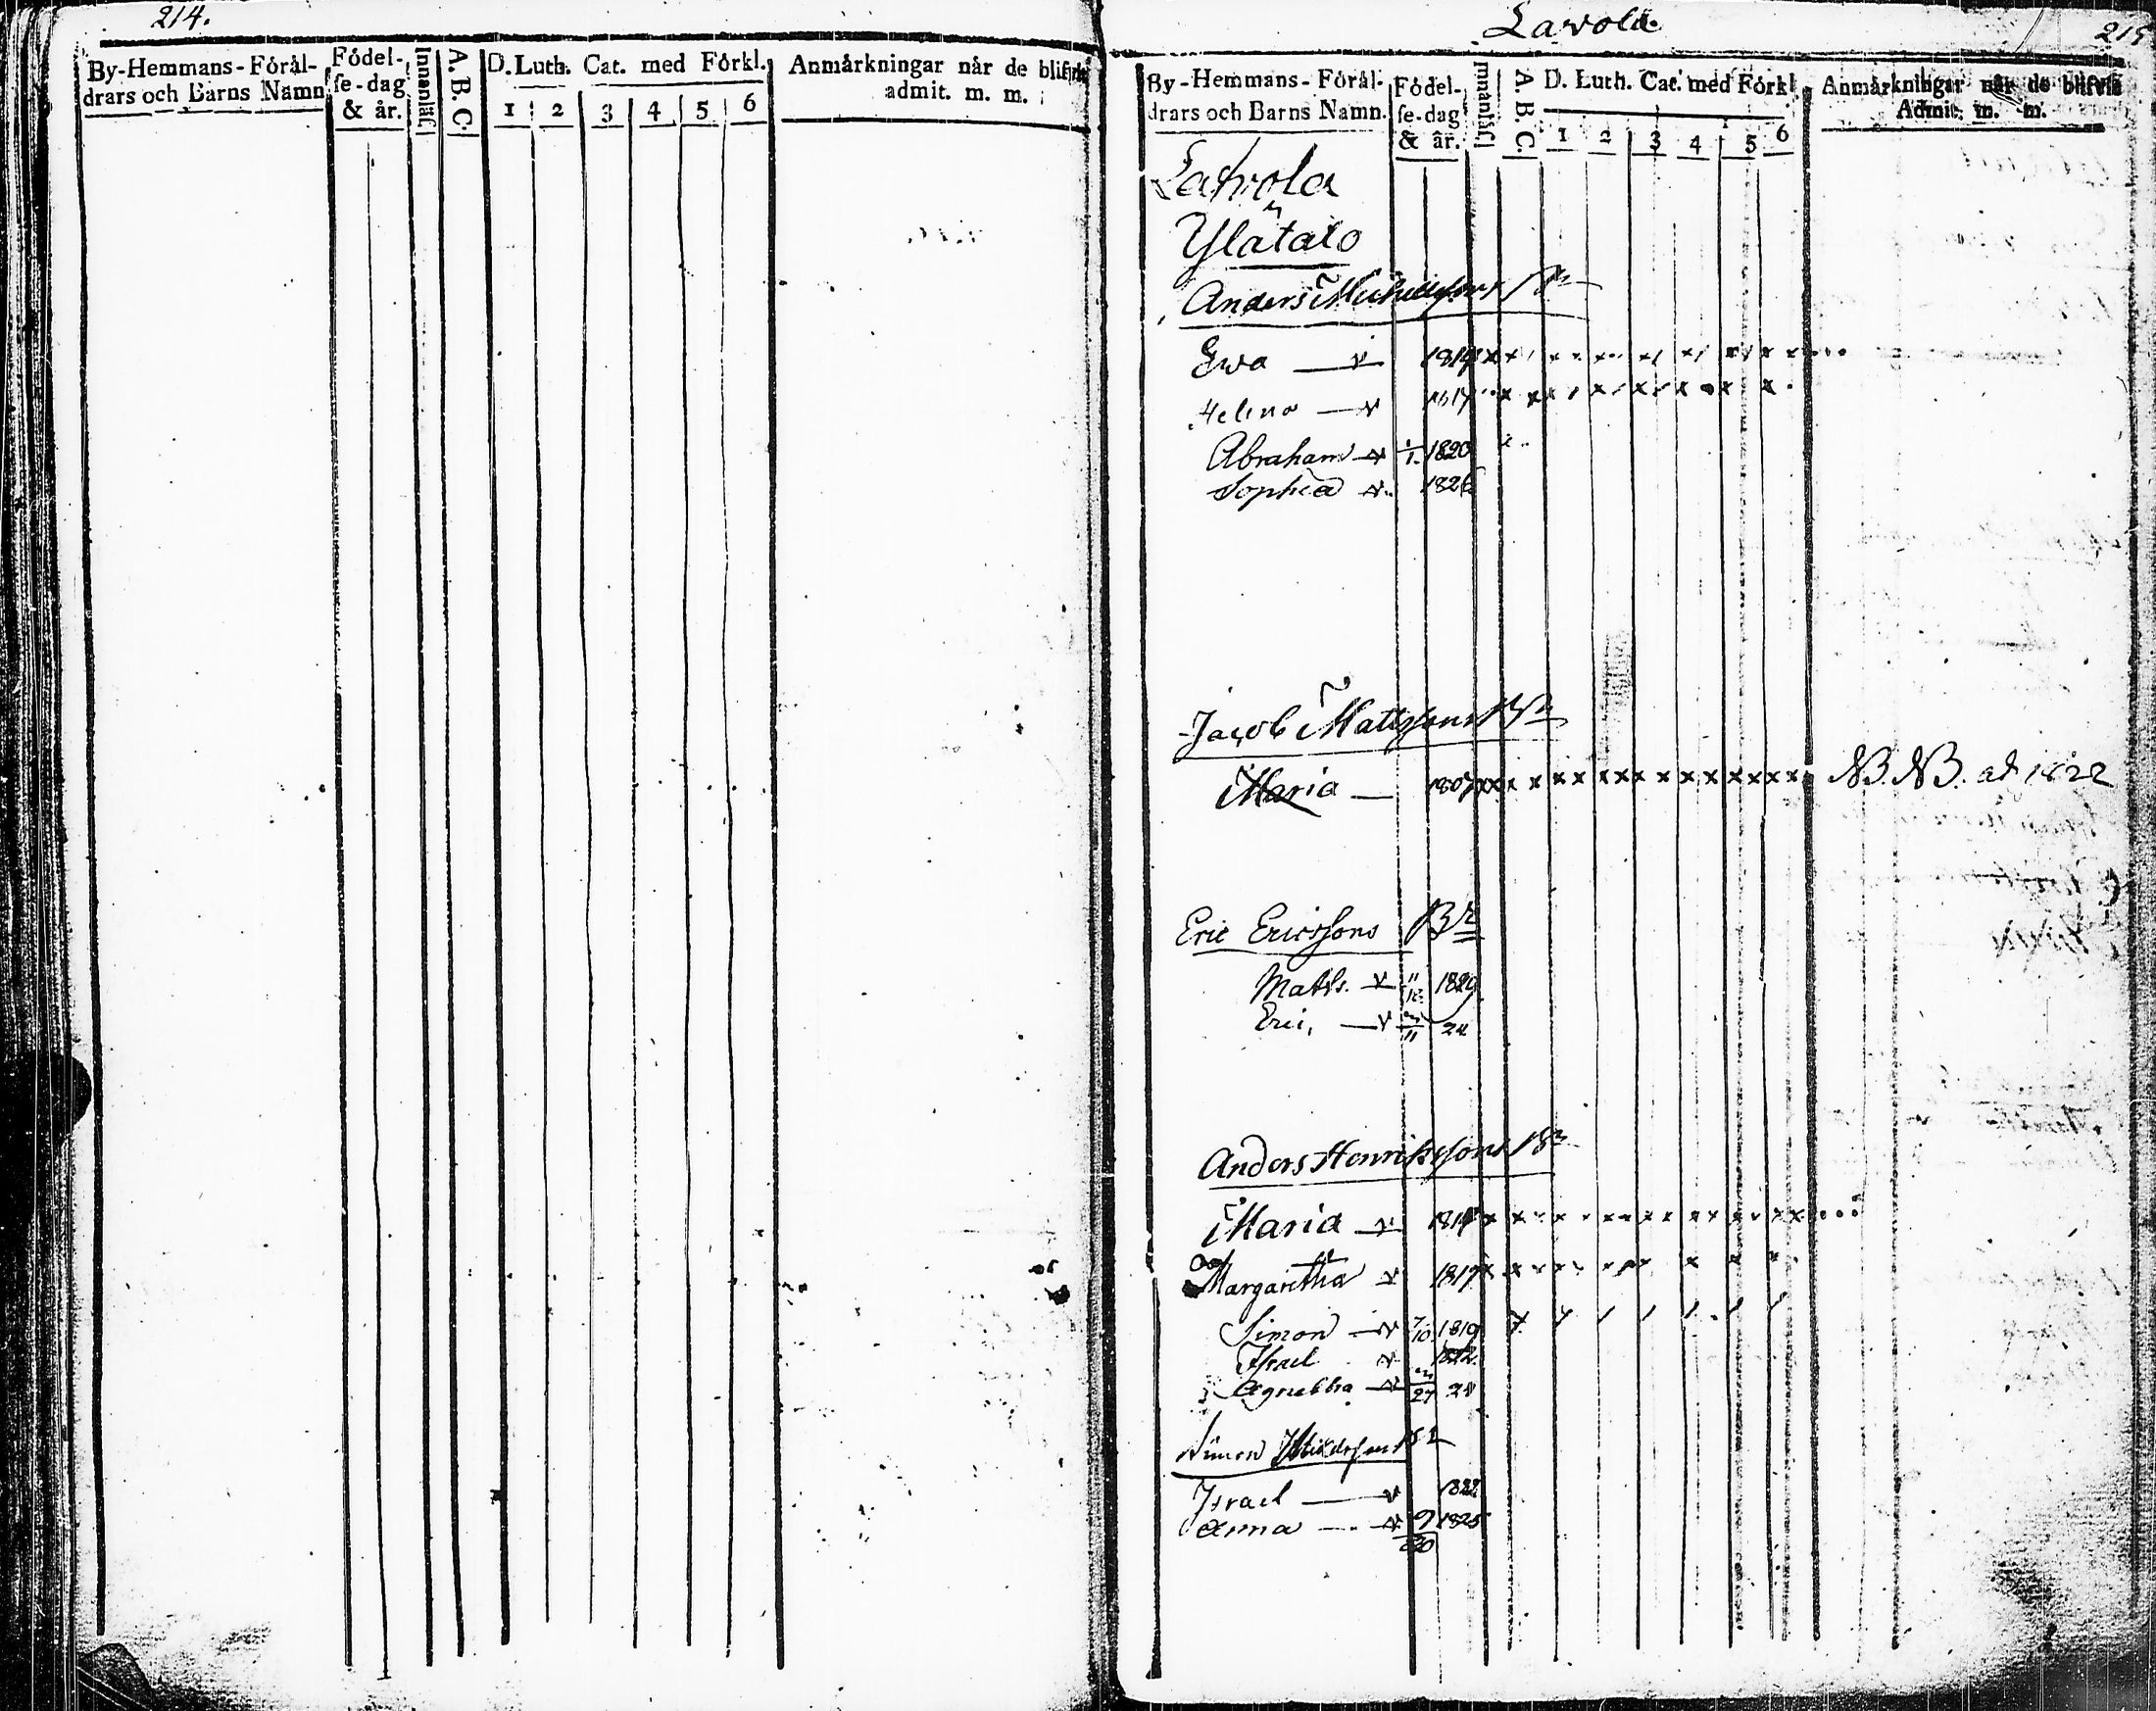 214.
By-Hemmans-Föräl-
drars och Barns Namn
Födel-
se-dag
& år.
Innanläsl.
A. B. C.
D. Luth. Cat. med Förkl.
1 2 3 4 5 6
Anmärkningar når de blifvit
admit. m. m.
Lavola
215
By-Hemmans-Föräl-
drars och Barns Namn.
Födel-
se-dag
& år.
Innanläsl.
A. B. C.
D. Luth. Cat. med Förkl
1 2 3 4 5 6
Anmärkningar når de blifvit
Admit. m. m.
Lavola
Ylätalo
Anders Michelssons Bn
Ewa 1814
Helena 1817
Abraham 1/1 1820
Sophia 1826
Jacob Mattssons Bn
Maria 1807 x x x x x x x x x x x x x x x NB. NB. ad 1822
Eric Ericssons Bn
Matts. 11/12 1829
Eric, 24
Anders Henrikssons Bn
Maria 1814
Margaretha 1817
Simon 7/10 1819
Israel 1822
Agnetha 27 24
Simon
Israel 1822
Anna 9/20 1825